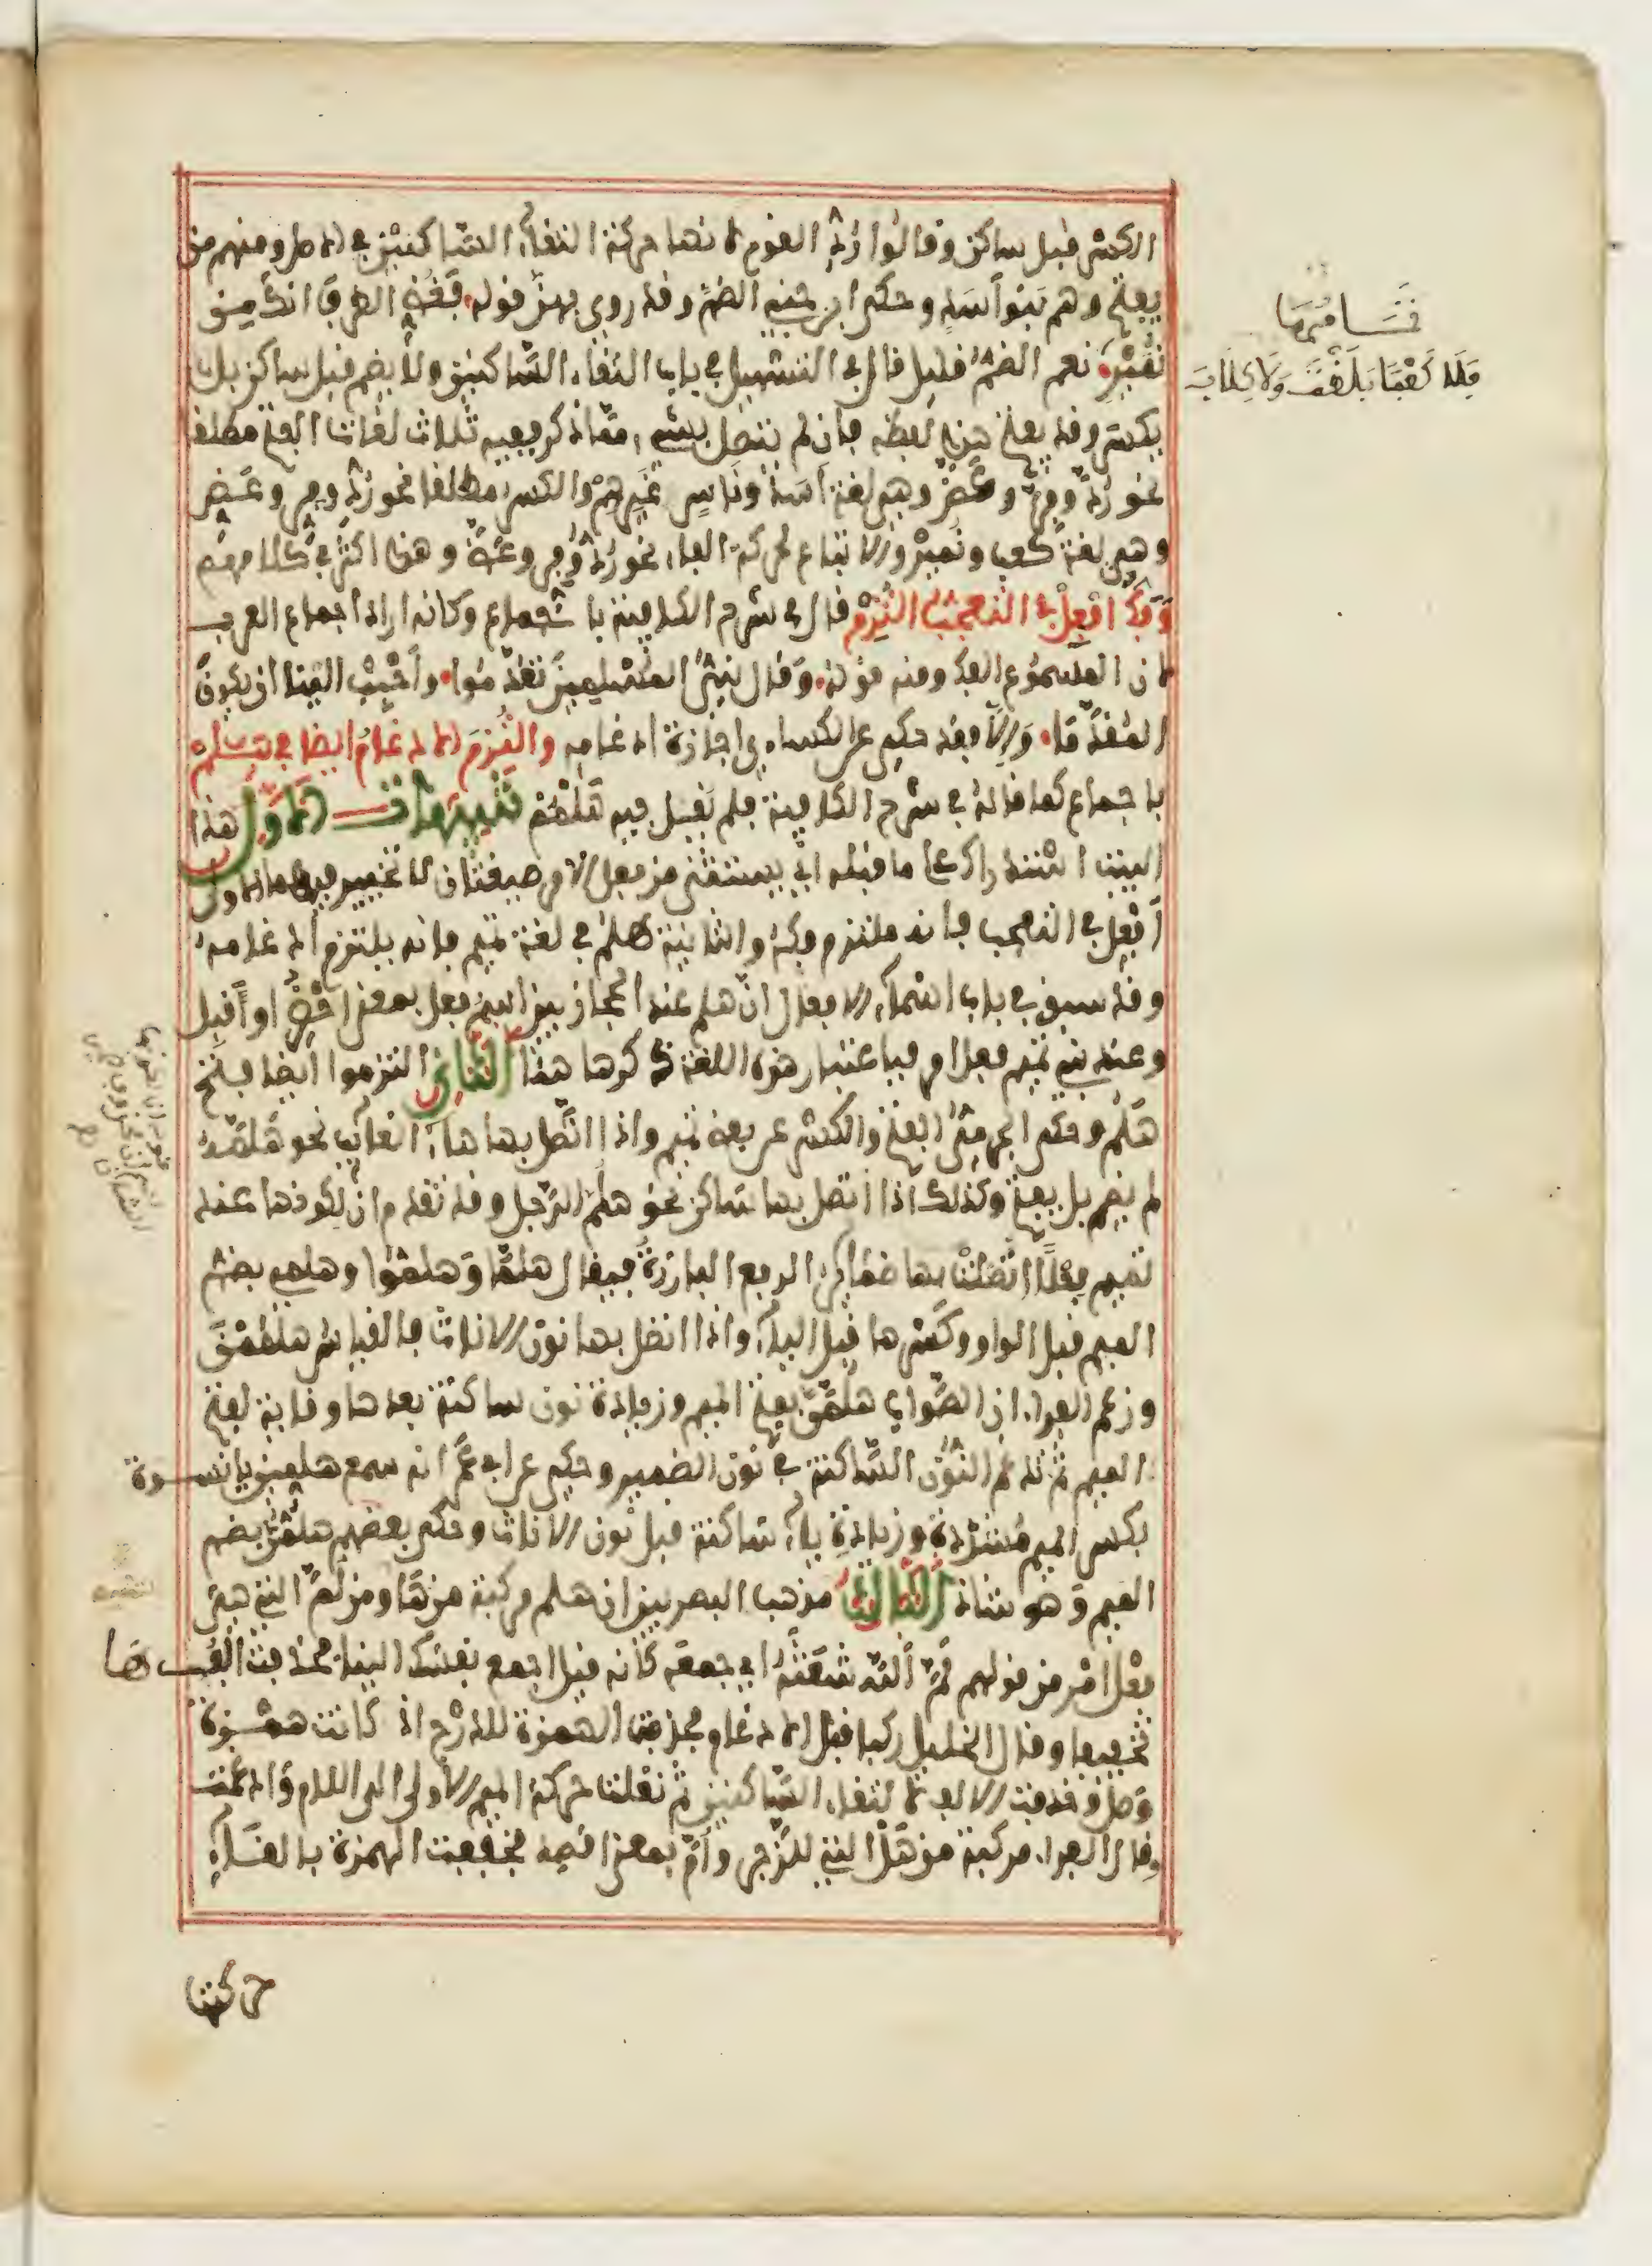 الكسر قبل ساكن وقالوا رُدِّ القوم لانها حركة التقاء الساكنين في الاصل ومنهم من
يفتح وهم بنو اسد وحكى ابن جني الضم وقد روي بهن قوله فغض الطرف انك من
نمير نعم الضم قليل قال في التسهيل في باب التقاء الساكنين ولا يضم قبل ساكن بل
يكسر وقد يفتح هذا لفظه فان لم تتصل بشيء مما ذكر ففيه ثلاث لغات الفتح مطلقا
نحو رد وفر وعض وهي لغة اسد وناس غيرهم والكسر مطلقا نحو رد وفر وعض
وهي لغة كعب ونمير والاتباع لحركة الفاء نحو رد وفر وعض وهذا اكثر في كلامهم
وَفَكُّ افعل في التعجب التزم قال في شرح الكافية باجماع وكانه اراد اجماع العرب
لان المسموع الفك ومنه قوله وقال نبي المسلمين تقدموا واحبب الينا ان يكون
المقدما والا فقد حكي عن الكساءي اجازة ادغامه والتزم الادغام ايضا في هلم
باجماع كما قاله في شرح الكافية فلم يقل فيه هلمم تنبيهات الاول هذا
البيت استدراك على ما قبله اي يستثنى من فعل الامر صيغتان لا تخيير فيهما الاولى
أفعل في التعجب فانه ملتزم فكه والثانية هلم في لغة تميم فانه يلتزم ادغامه
وقد سبق في باب اسماء الافعال ان هلم عند الحجازيين اسم فعل بمعنى احضر او أقبل
وعند بني تميم فعل امر فباعتبار هذه اللغة ذكرها هنا الثاني التزموا ايضا فتح
هلم وحكى الجرمي الفتح والكسر عن بعض تميم واذا اتصل بها هاء الغائب نحو هلمه
لم يضم بل يفتح وكذلك اذا اتصل بها ساكن نحو هلم الرجل وقد تقدم ان لكونها عند
تميم فعلا اتصلت بها ضمائر الرفع البارزة فيقال هلما وهلموا وهلمي بضم
الميم قبل الواو وكسرها قبل الياء واذا اتصل بها نون الاناث فالقياس هلممن
وزعم الفراء ان الصواب هلمن بفتح الميم وزيادة نون ساكنة بعدها وقاية لفتح
الميم ثم تدغم النون الساكنة في نون الضمير وحكي عن ابي عمر انه سمع هلمين يانسوة
بكسر الميم مشددة وزيادة ياء ساكنة قبل نون الاناث وحكى بعضهم هلمن بضم
الميم وهو شاذ الثالث مذهب البصريين ان هلم مركبة من ها ومن لم التي هي
فعل امر من قولهم لم الله شعثه اي جمعه كانه قيل اجمع نفسك الينا فحذفت الفها
تخفيفا وقال الخليل ركبا قبل الادغام فحذفت الهمزة للدرج اذ كانت همزة
وصل وحذفت الالف لالتقاء الساكنين ثم نقلت حركة الميم الاولى الى اللام وادغمت
وقال الفراء مركبة من هل التي للزجر وأم بمعنى اقصد فخففت الهمزة بالقاء
حركتها
فلا كعبا بلغت ولا كلابا